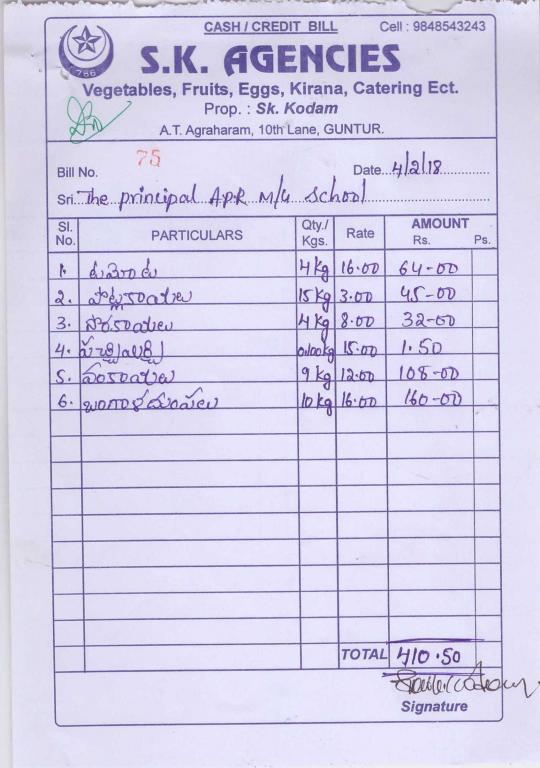 CASH / CREDIT BILL Cell : 9848543243
786
S.K. AGENCIES
Vegetables, Fruits, Eggs, Kirana, Catering Ect.
Prop. : Sk. Kodam
A.T. Agraharam, 10th Lane, GUNTUR.
Bill No. 75 Date 4/2/18
Sri. The principal A.P.R M/G School
Sl. No. PARTICULARS Qty./ Kgs. Rate AMOUNT Rs. Ps.
1. టమోటా 4 kg 16.00 64-00
2. పొట్లకాయలు 15 kg 3.00 45-00
3. సొరకాయలు 4 kg 8.00 32-00
4. పచ్చిమిర్చి 0.100 kg 15.00 1.50
5. వంకాయలు 9 kg 12.00 108-00
6. బంగాళదుంపలు 10 kg 16.00 160-00
TOTAL 410.50
Signature